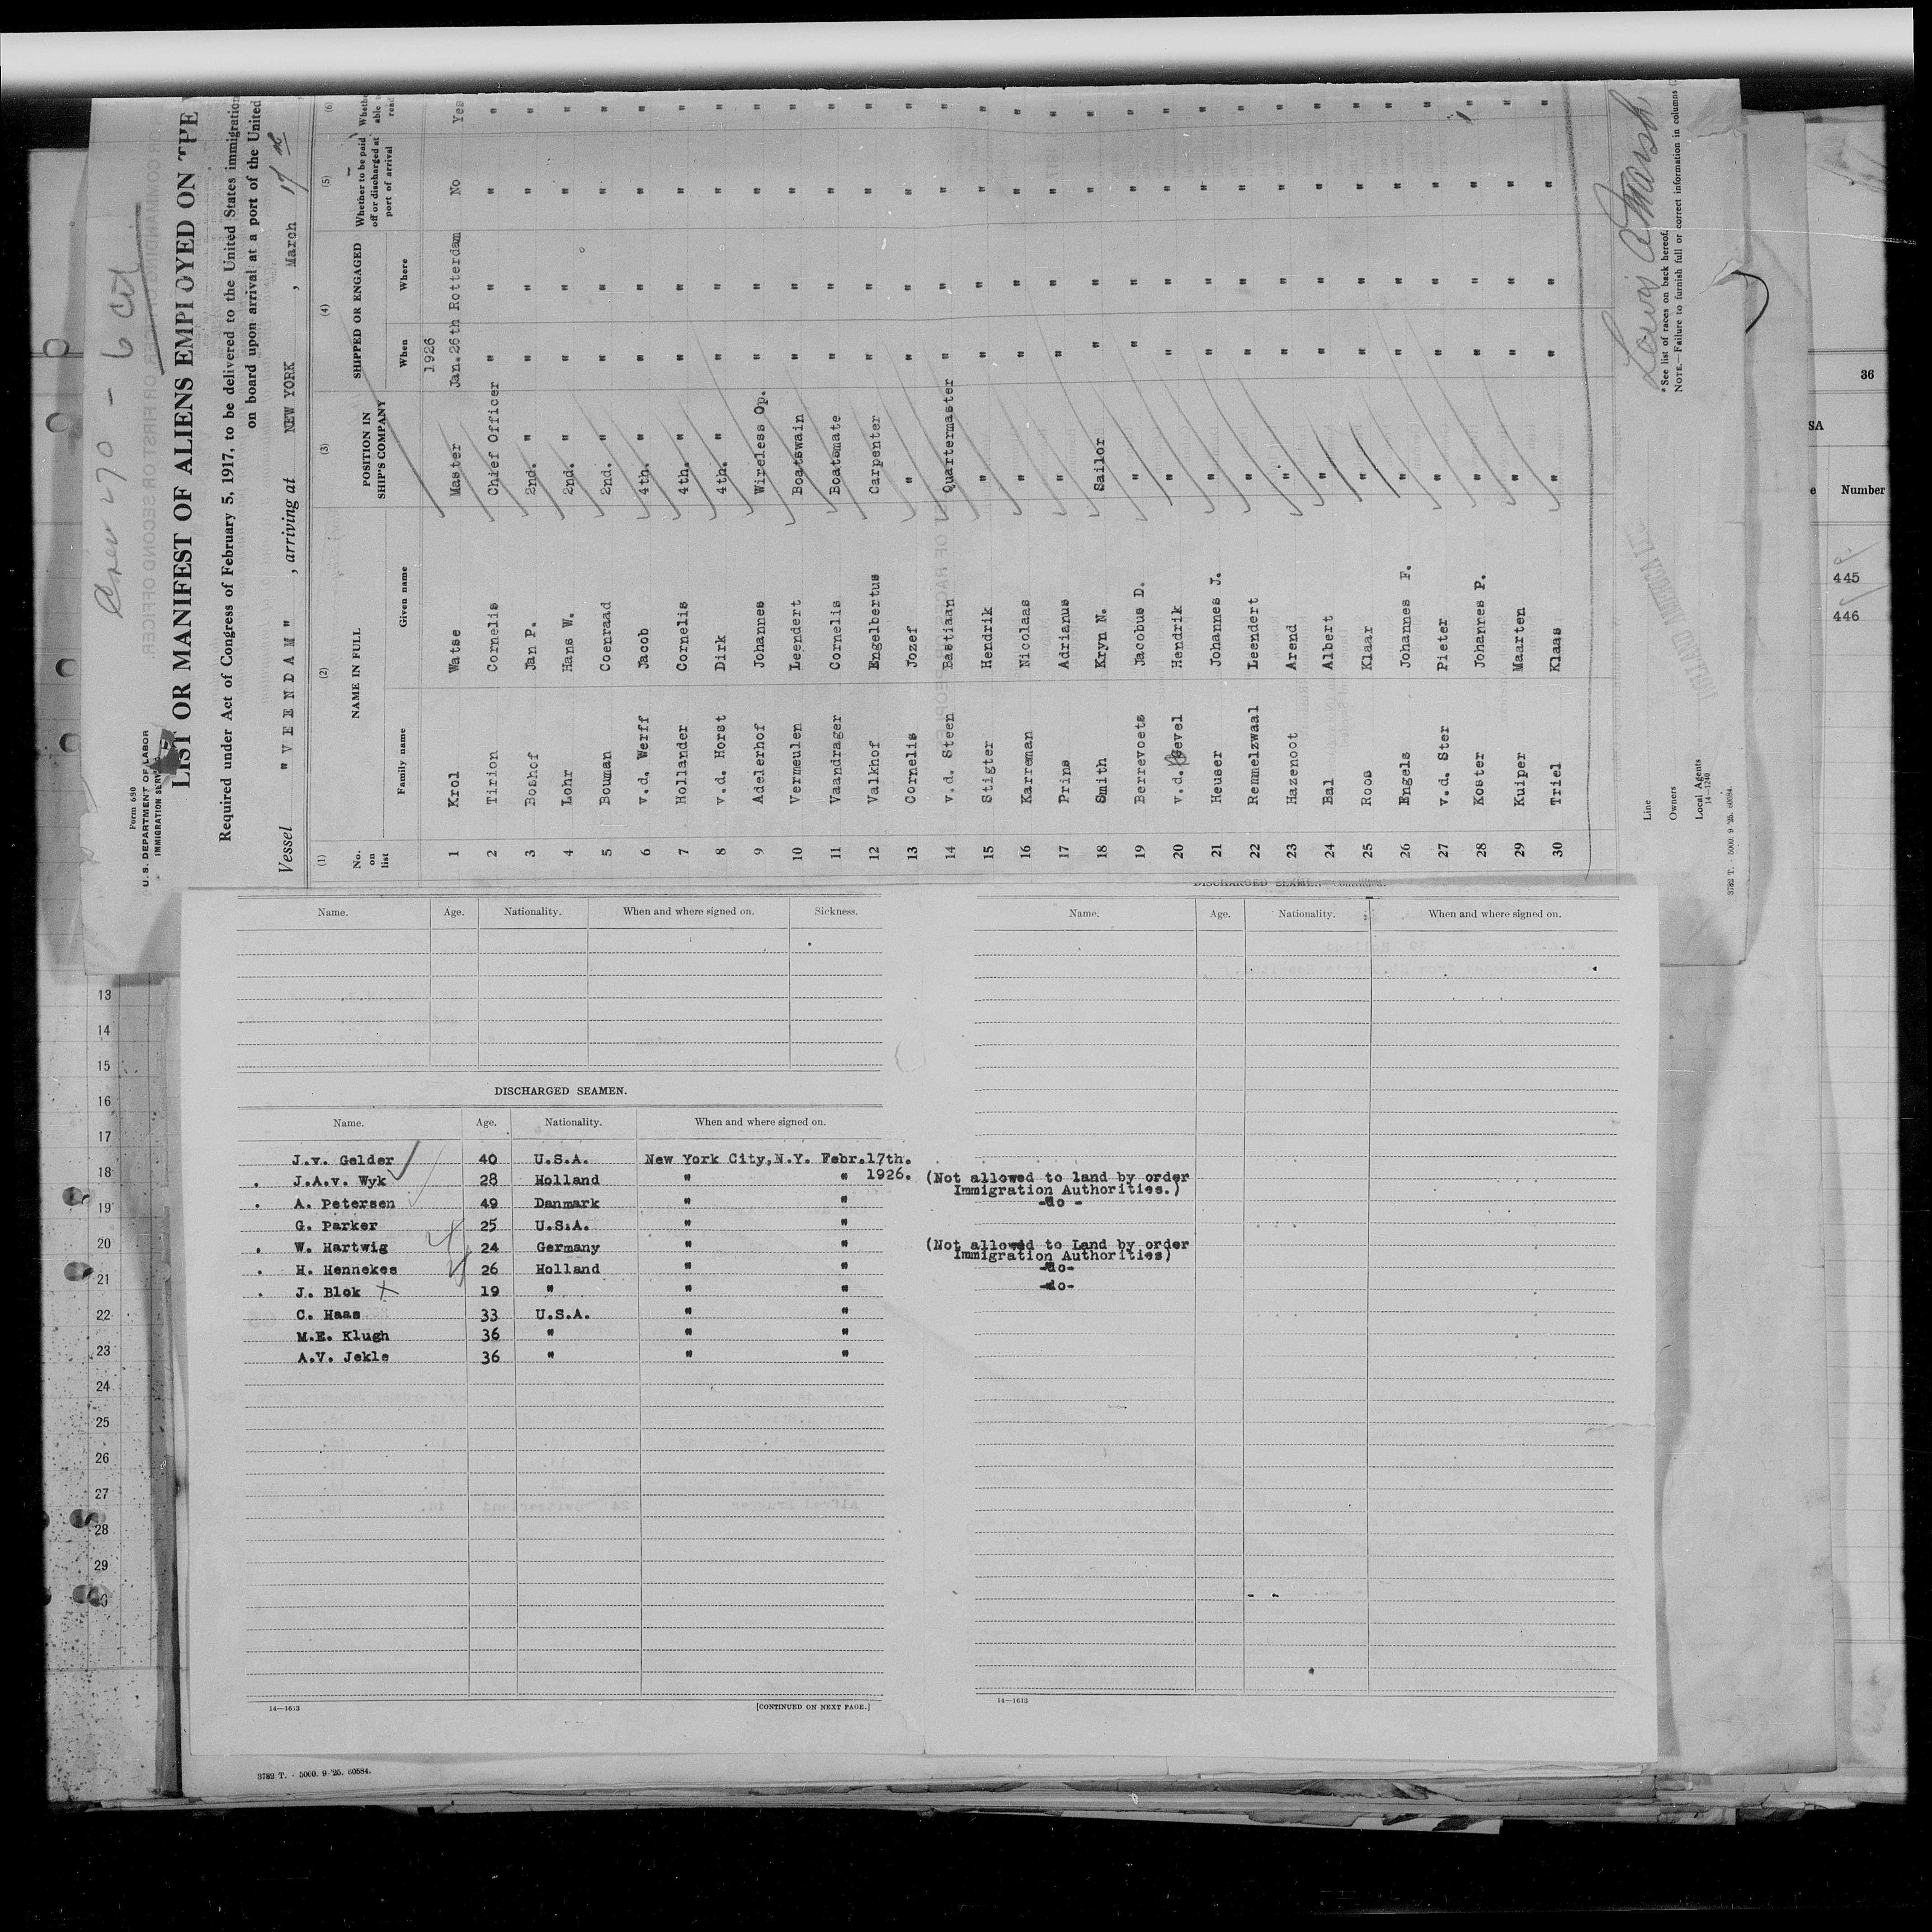 Crew 270 - 6 Cit
Form 680
U.S. DEPARTMENT OF LABOR
IMMIGRATION SERVICE
LIST OR MANIFEST OF ALIENS EMPLOYED ON THE
Required under Act of Congress of February 5, 1917, to be delivered to the United States immigration
on board upon arrival at a port of the United
Vessel "VEENDAM", arriving at NEW YORK, March 17
(1) (2) (3) (4) (5) (6)
No. on list NAME IN FULL POSITION IN SHIP'S COMPANY SHIPPED OR ENGAGED Whether to be paid off or discharged at port of arrival Whether able read
Family name Given name When Where
1926
1 Krol Watse Master Jan.26th Rotterdam No Yes
2 Tirion Cornelis Chief Officer " " " "
3 Boshof Jan P. 2nd. " " " " "
4 Lohr Hans W. 2nd. " " " " "
5 Bouman Coenraad 2nd. " " " " "
6 v.d. Werff Jacob 4th. " " " " "
7 Hollander Cornelis 4th. " " " " "
8 v.d. Horst Dirk 4th. " " " " "
9 Adelerhof Johannes Wireless Op. " " " "
10 Vermeulen Leendert Boatswain " " " "
11 Vaandrager Cornelis Boatsmate " " " "
12 Valkhof Engelbertus Carpenter " " " "
13 Cornelis Jozef " " " " "
14 v.d. Steen Bastiaan Quartermaster " " " "
15 Stigter Hendrik " " " " "
16 Karreman Nicolaas " " " " "
17 Prins Adrianus " " " " "
18 Smith Kryn N. Sailor " " " "
19 Berrevoets Jacobus D. " " " " "
20 v.d. Gevel Hendrik " " " " "
21 Heuser Johannes J. " " " " "
22 Remmelzwaal Leendert " " " " "
23 Hazenoot Arend " " " " "
24 Bal Albert " " " " "
25 Roos Klaar " " " " "
26 Engels Johannes F. " " " " "
27 v.d. Ster Pieter " " " " "
28 Koster Johannes P. " " " " "
29 Kuiper Maarten " " " " "
30 Triel Klaas " " " " "
Line
Owners
Local Agents
14—1240
3782 T. - 5000. 9-'25. 60584.
*See list of races on back hereof.
NOTE.—Failure to furnish full or correct information in columns
36
SA
Number
445
446
Name. Age. Nationality. When and where signed on. Sickness.
DISCHARGED SEAMEN.
Name. Age. Nationality. When and where signed on.
J.v. Gelder 40 U.S.A. New York City,N.Y. Febr.17th.
1926.
J.A.v. Wyk 28 Holland " " (Not allowed to land by order
Immigration Authorities.)
A. Petersen 49 Danmark " " -do -
G. Parker 25 U.S.A. " "
W. Hartwig 24 Germany " " (Not allowed to Land by order
Immigration Authorities)
H. Hennekes 26 Holland " " -do-
J. Blok 19 " " " -do-
C. Haas 33 U.S.A. " "
M.E. Klugh 36 " " "
A.V. Jekle 36 " " "
14—1613 [CONTINUED ON NEXT PAGE.]
3782 T. - 5000. 9-'25. 60584.
Name. Age. Nationality. When and where signed on.
14—1613
13
14
15
16
17
18
19
20
21
22
23
24
25
26
27
28
29